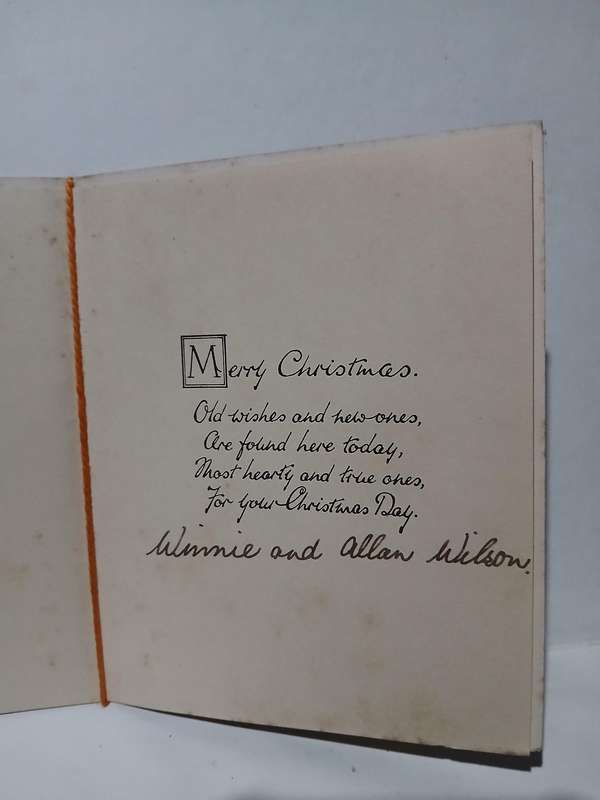 Merry Christmas.
Old wishes and new ones,
Are found here today,
Most hearty and true ones,
For your Christmas Day.
Winnie and Allan Wilson.